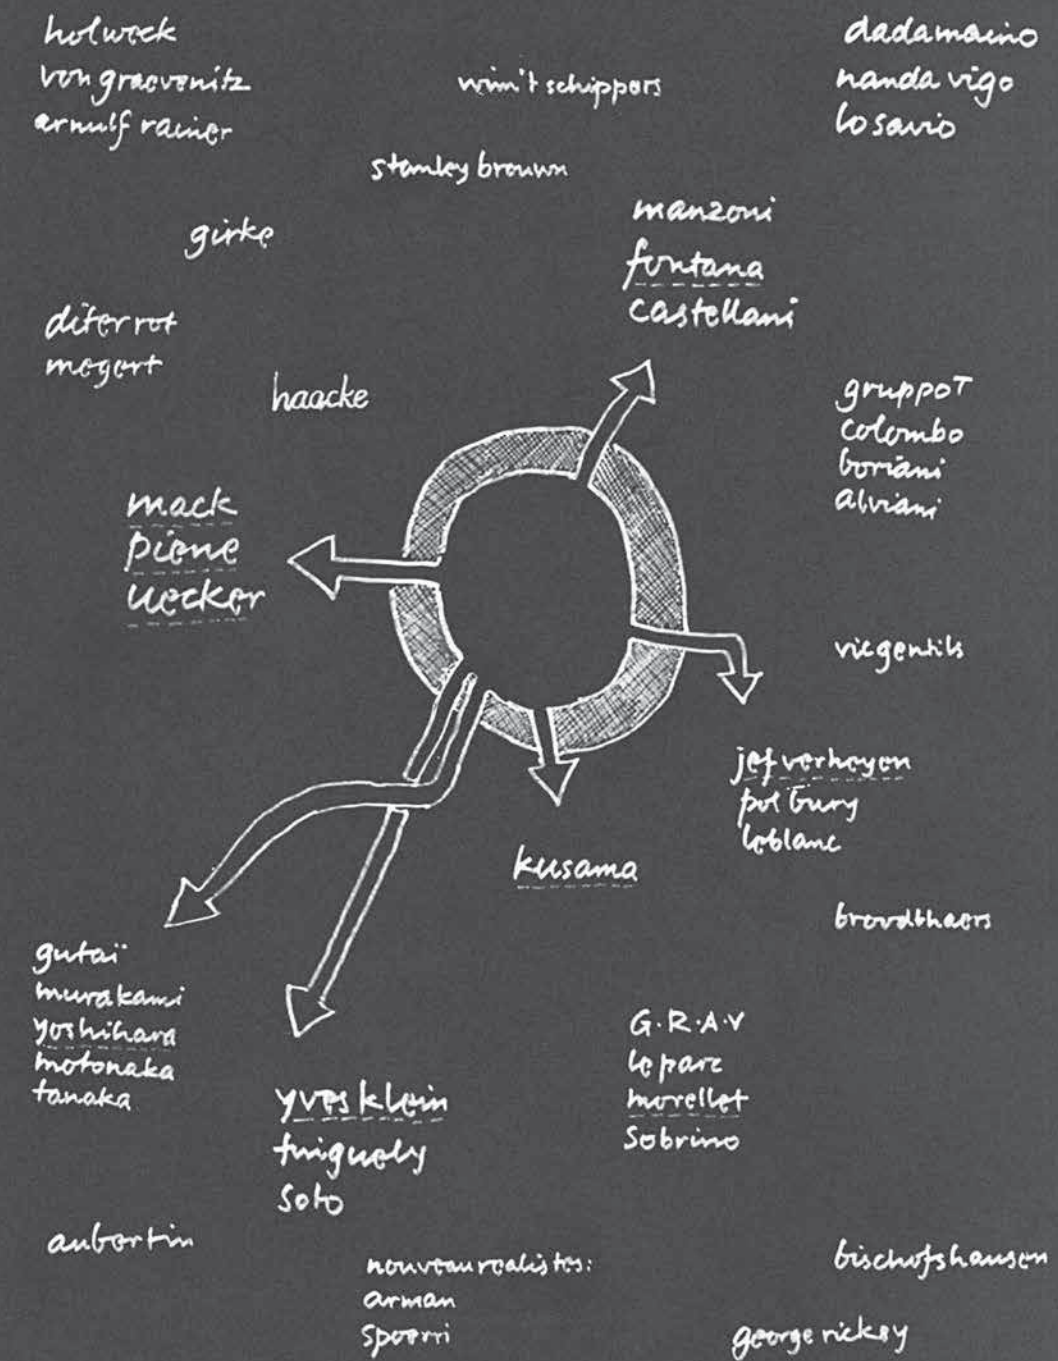 holweck
von graevenitz
arnulf rainer
wim't schippers
dadamaino
nanda vigo
lo savio
stanley brouwn
girke
manzoni
fontana
castellani
diter rot
megert
haacke
gruppo T
colombo
boriani
alviani
mack
piene
uecker
vic gentils
jef verheyen
pol bury
leblanc
kusama
broodthaers
gutaï
murakami
yoshihara
motonaka
tanaka
G.R.A.V
le parc
morellet
sobrino
yves klein
tinguely
soto
aubertin
nouveau realistes:
arman
spoerri
bischofshausen
george rickey